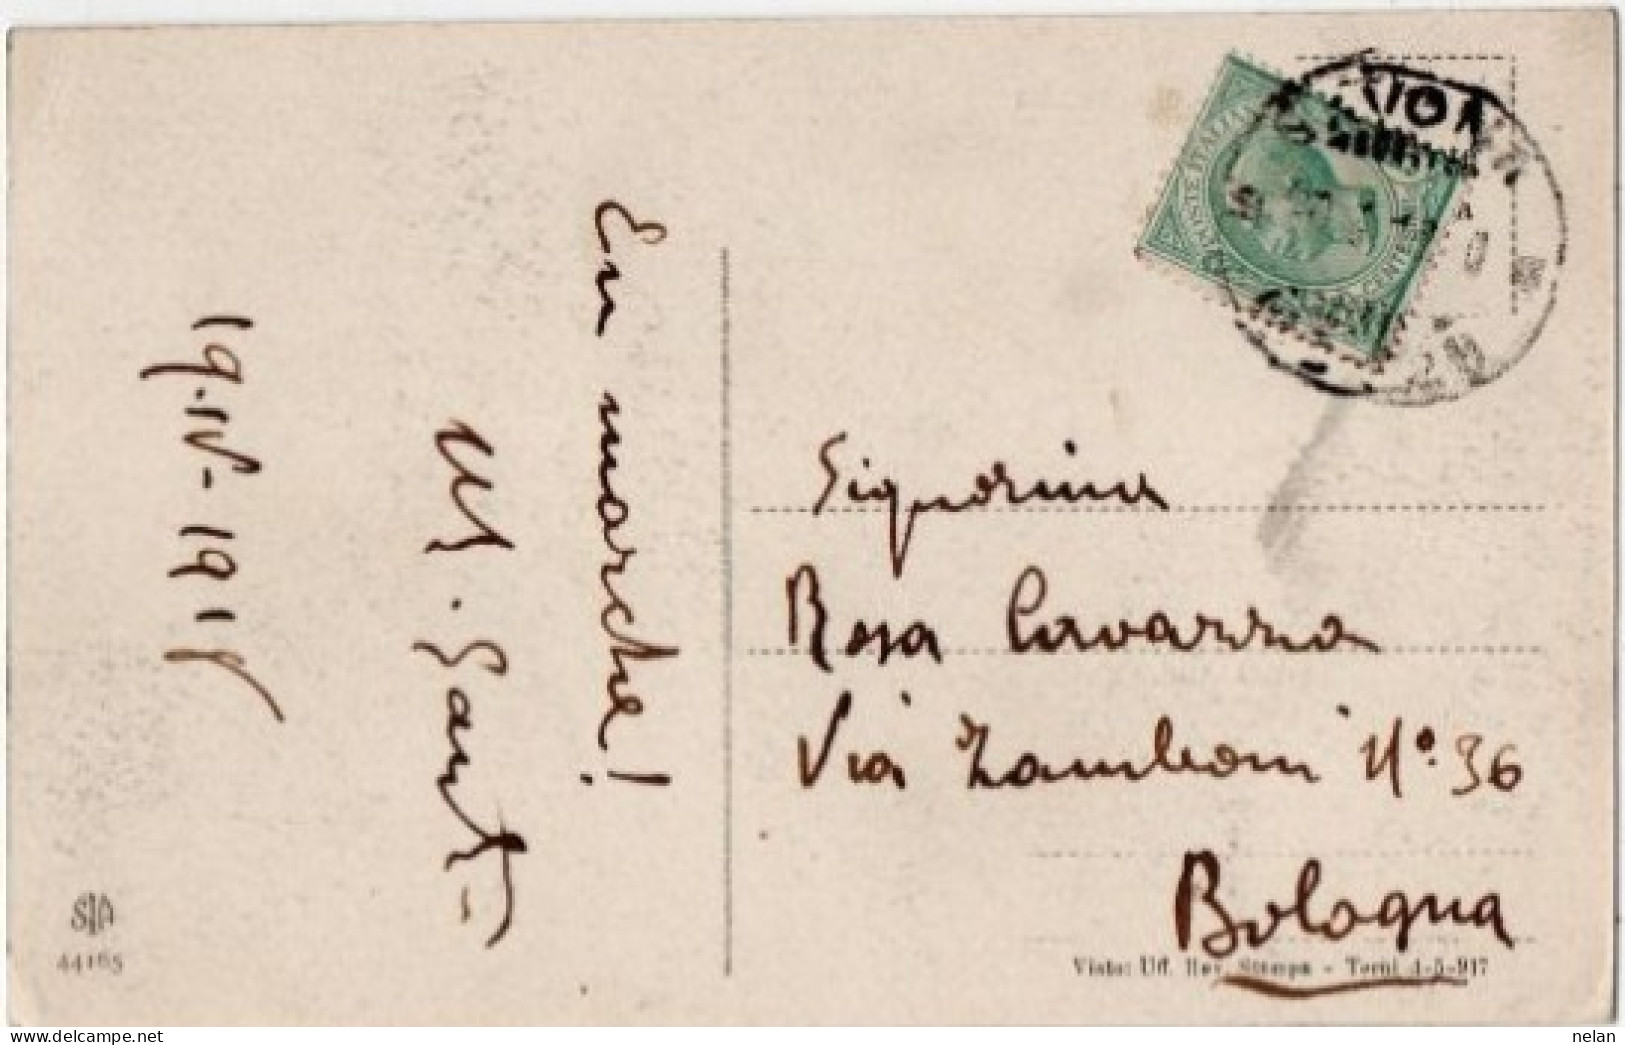 En marche!
19.IV-1918
Signorina
Rosa Cavazza
Via Zamboni N° 36
Bologna
POSTE ITALIANE
SIA
44165
Visto: Uff. Rev. Stampa - Terni 4-5-917
nelan